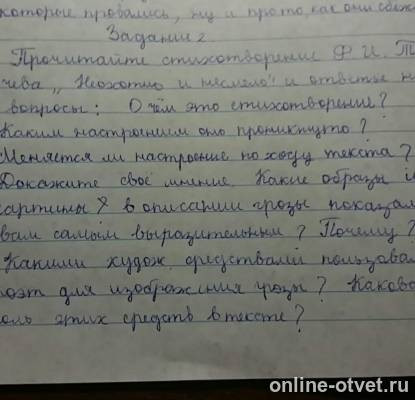 которые провались, ну и прото, как они сбеж
Задание 2
Прочитайте стихотворение Ф. И. Т
чева „Неохотно и несмело" и ответье н
вопросы: О чём это стихотворение?
Каким настроением оно проникнуто?
Меняется ли настроение по ходу текста?
Докажите своё мнение. Какие образы и
картины в описании грозы показал
вам самым выразительным? Почему?
Какими худож. средствами пользовал
поэт для изображения грозы? Какова
оль этих средств в тексте?
online-otvet.ru